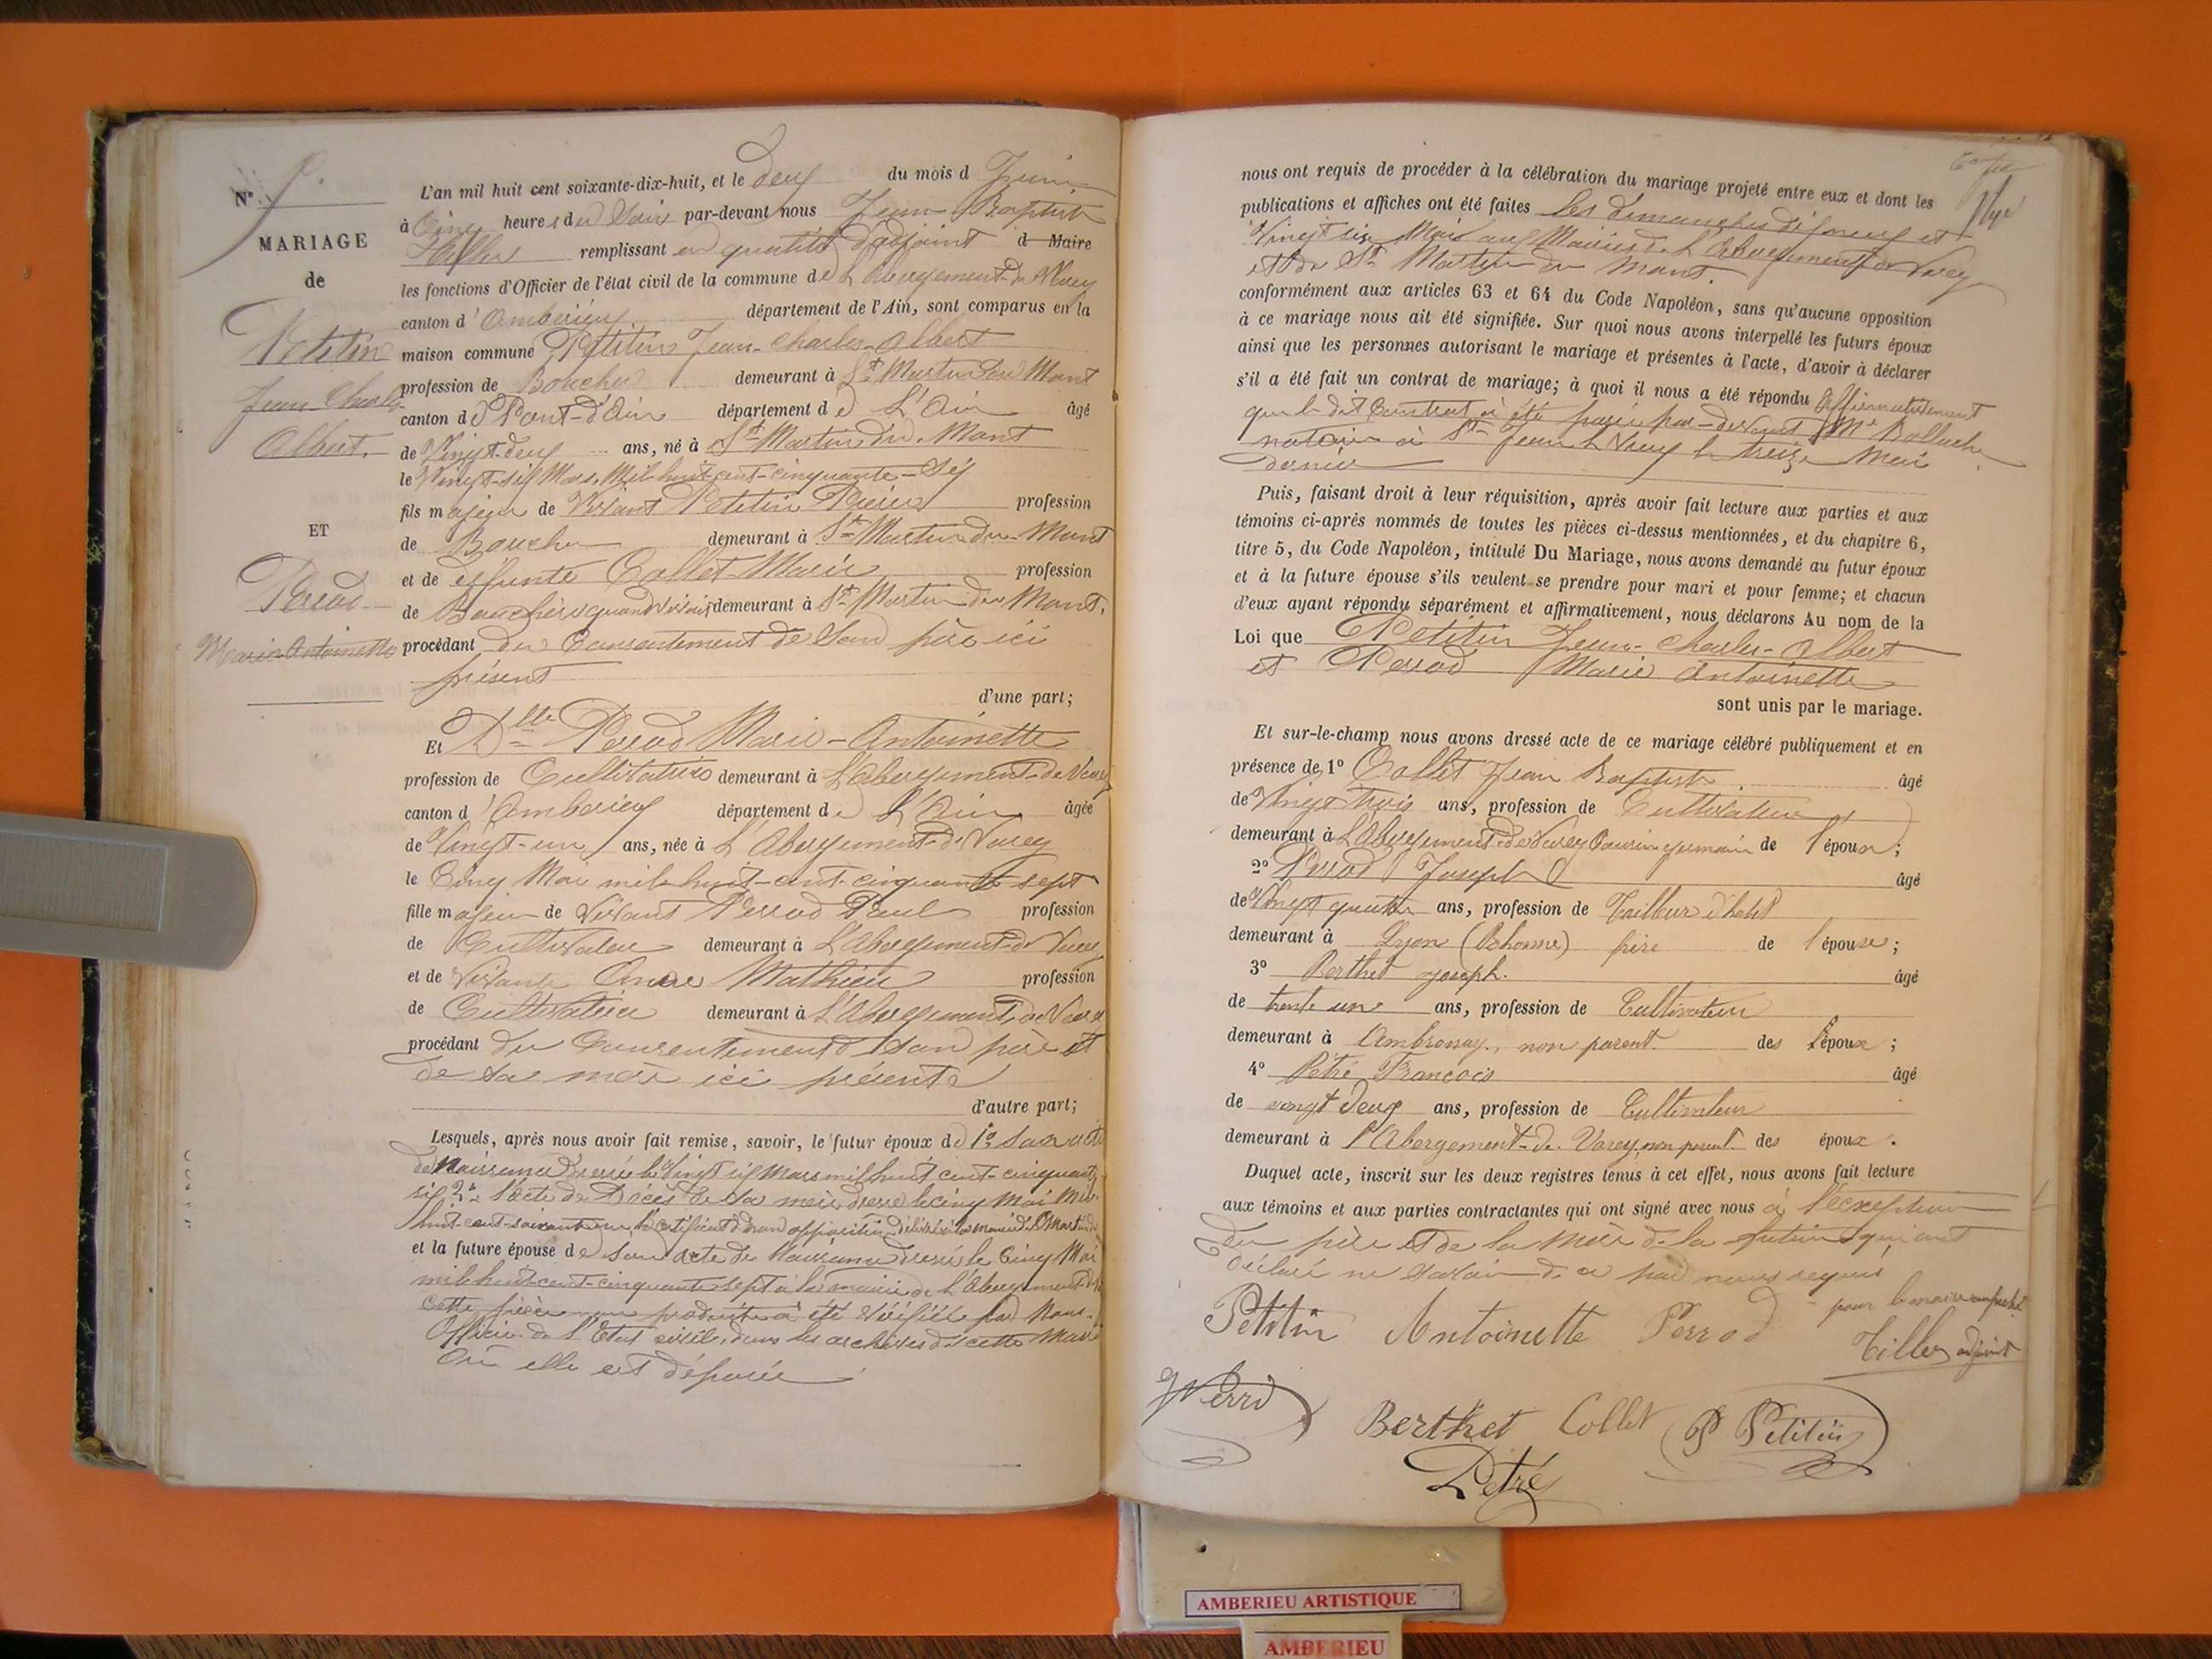 N°
MARIAGE
de
Petitin
Jean-Charles
Albert.
ET
Perrod
Marie Antoinette
L'an mil huit cent soixante-dix-huit, et le deux du mois d Juin
à Cinq heures du Soir par-devant nous Jean Baptiste
Tiller remplissant en qualité d'adjoint d Maire
les fonctions d'Officier de l'état civil de la commune de L'Abergement-de-Varey
canton d'Ambérieu département de l'Ain, sont comparus en la
maison commune Petitin Jean-Charles-Albert
profession de Boucher demeurant à St Martin du Mont
canton de Pont-d'Ain département de L'Ain âgé
de Vingt-deux ans, né à St Martin du Mont
le Vingt-six Mars Mil huit-cent-cinquante-Six
fils majeur de Vivant Petitin Pierre profession
de Boucher demeurant à St Martin du Mont
et de défunte Collet Marie profession
de Bouchère quand vivait demeurant à St Martin du Mont,
procédant du Consentement de Son père ici
présent
d'une part;
Et Dlle Perrod Marie-Antoinette
profession de Cultivatrice demeurant à L'Abergement-de-Varey
canton d'Ambérieu département de L'Ain âgée
de Vingt-un ans, née à L'Abergement-de-Varey
le Cinq Mai mil huit-cent-cinquante sept
fille majeure de Vivant Perrod Paul profession
de Cultivateur demeurant à L'Abergement-de Varey
et de Vivante Mathieu profession
de Cultivatrice demeurant à L'Abergement, de Varey
procédant du Consentement d son père et
de sa mère ici présents
d'autre part;
Lesquels, après nous avoir fait remise, savoir, le futur époux de 1° Son acte
de Naissance dressé le Vingt six Mars mil huit cent-cinquante
six 2° L'acte de Décès de Sa mère dressé le cinq Mai Mil-
huit-cent-soixante le certificat de non opposition délivré à la mairie de St Martin du
et la future épouse de Son acte de Naissance dressé le Cinq Mai
mil huit-cent-cinquante sept à la mairie de L'Abergement-de
Cette pièce non produite a été vérifiée par Nous.
Officier de l'Etat civil, dans les archives de cette Mairie
Où elle est déposée
nous ont requis de procéder à la célébration du mariage projeté entre eux et dont les
publications et affiches ont été faites les dimanches dix neuf et
Vingt six Mai aux Mairies de L'Abergement de Varey
et de St Martin du Mont
conformément aux articles 63 et 64 du Code Napoléon, sans qu'aucune opposition
à ce mariage nous ait été signifiée. Sur quoi nous avons interpellé les futurs époux
ainsi que les personnes autorisant le mariage et présentes à l'acte, d'avoir à déclarer
s'il a été fait un contrat de mariage; à quoi il nous a été répondu Affirmativement
que le dit Contrat a été passé par-devant Me
notaire à St Jean le Vieux le treize Mai
dernier
Puis, faisant droit à leur réquisition, après avoir fait lecture aux parties et aux
témoins ci-après nommés de toutes les pièces ci-dessus mentionnées, et du chapitre 6,
titre 5, du Code Napoléon, intitulé Du Mariage, nous avons demandé au futur époux
et à la future épouse s'ils veulent se prendre pour mari et pour femme; et chacun
d'eux ayant répondu séparément et affirmativement, nous déclarons Au nom de la
Loi que Petitin Jean-Charles-Albert
et Perrod Marie Antoinette
sont unis par le mariage.
Et sur-le-champ nous avons dressé acte de ce mariage célébré publiquement et en
présence de 1° Collet Jean Baptiste âgé
de Vingt trois ans, profession de Cultivateur
demeurant à L'Abergement-de Varey Cousin germain de l'époux;
2° Perrod Joseph âgé
de Vingt quatre ans, profession de Tailleur d'habit
demeurant à Lyon (Rhonne) frère de l'épouse;
3° Berthet Joseph. âgé
de trente un ans, profession de Cultivateur
demeurant à Ambronay, non parent des époux;
4° Pétré François âgé
de vingt deux ans, profession de Cultivateur
demeurant à l'Abergement-de-Varey, non parent des époux.
Duquel acte, inscrit sur les deux registres tenus à cet effet, nous avons fait lecture
aux témoins et aux parties contractantes qui ont signé avec nous à l'exception
du père et de la Mère de la future qui ont
déclaré ne Savoir de ce par nous requis
Petitin Antoinette Perrod pour le maire empêché
Tiller adjoint
Berthet Collet P Petitin
Petré
AMBERIEU ARTISTIQUE
AMBERIEU